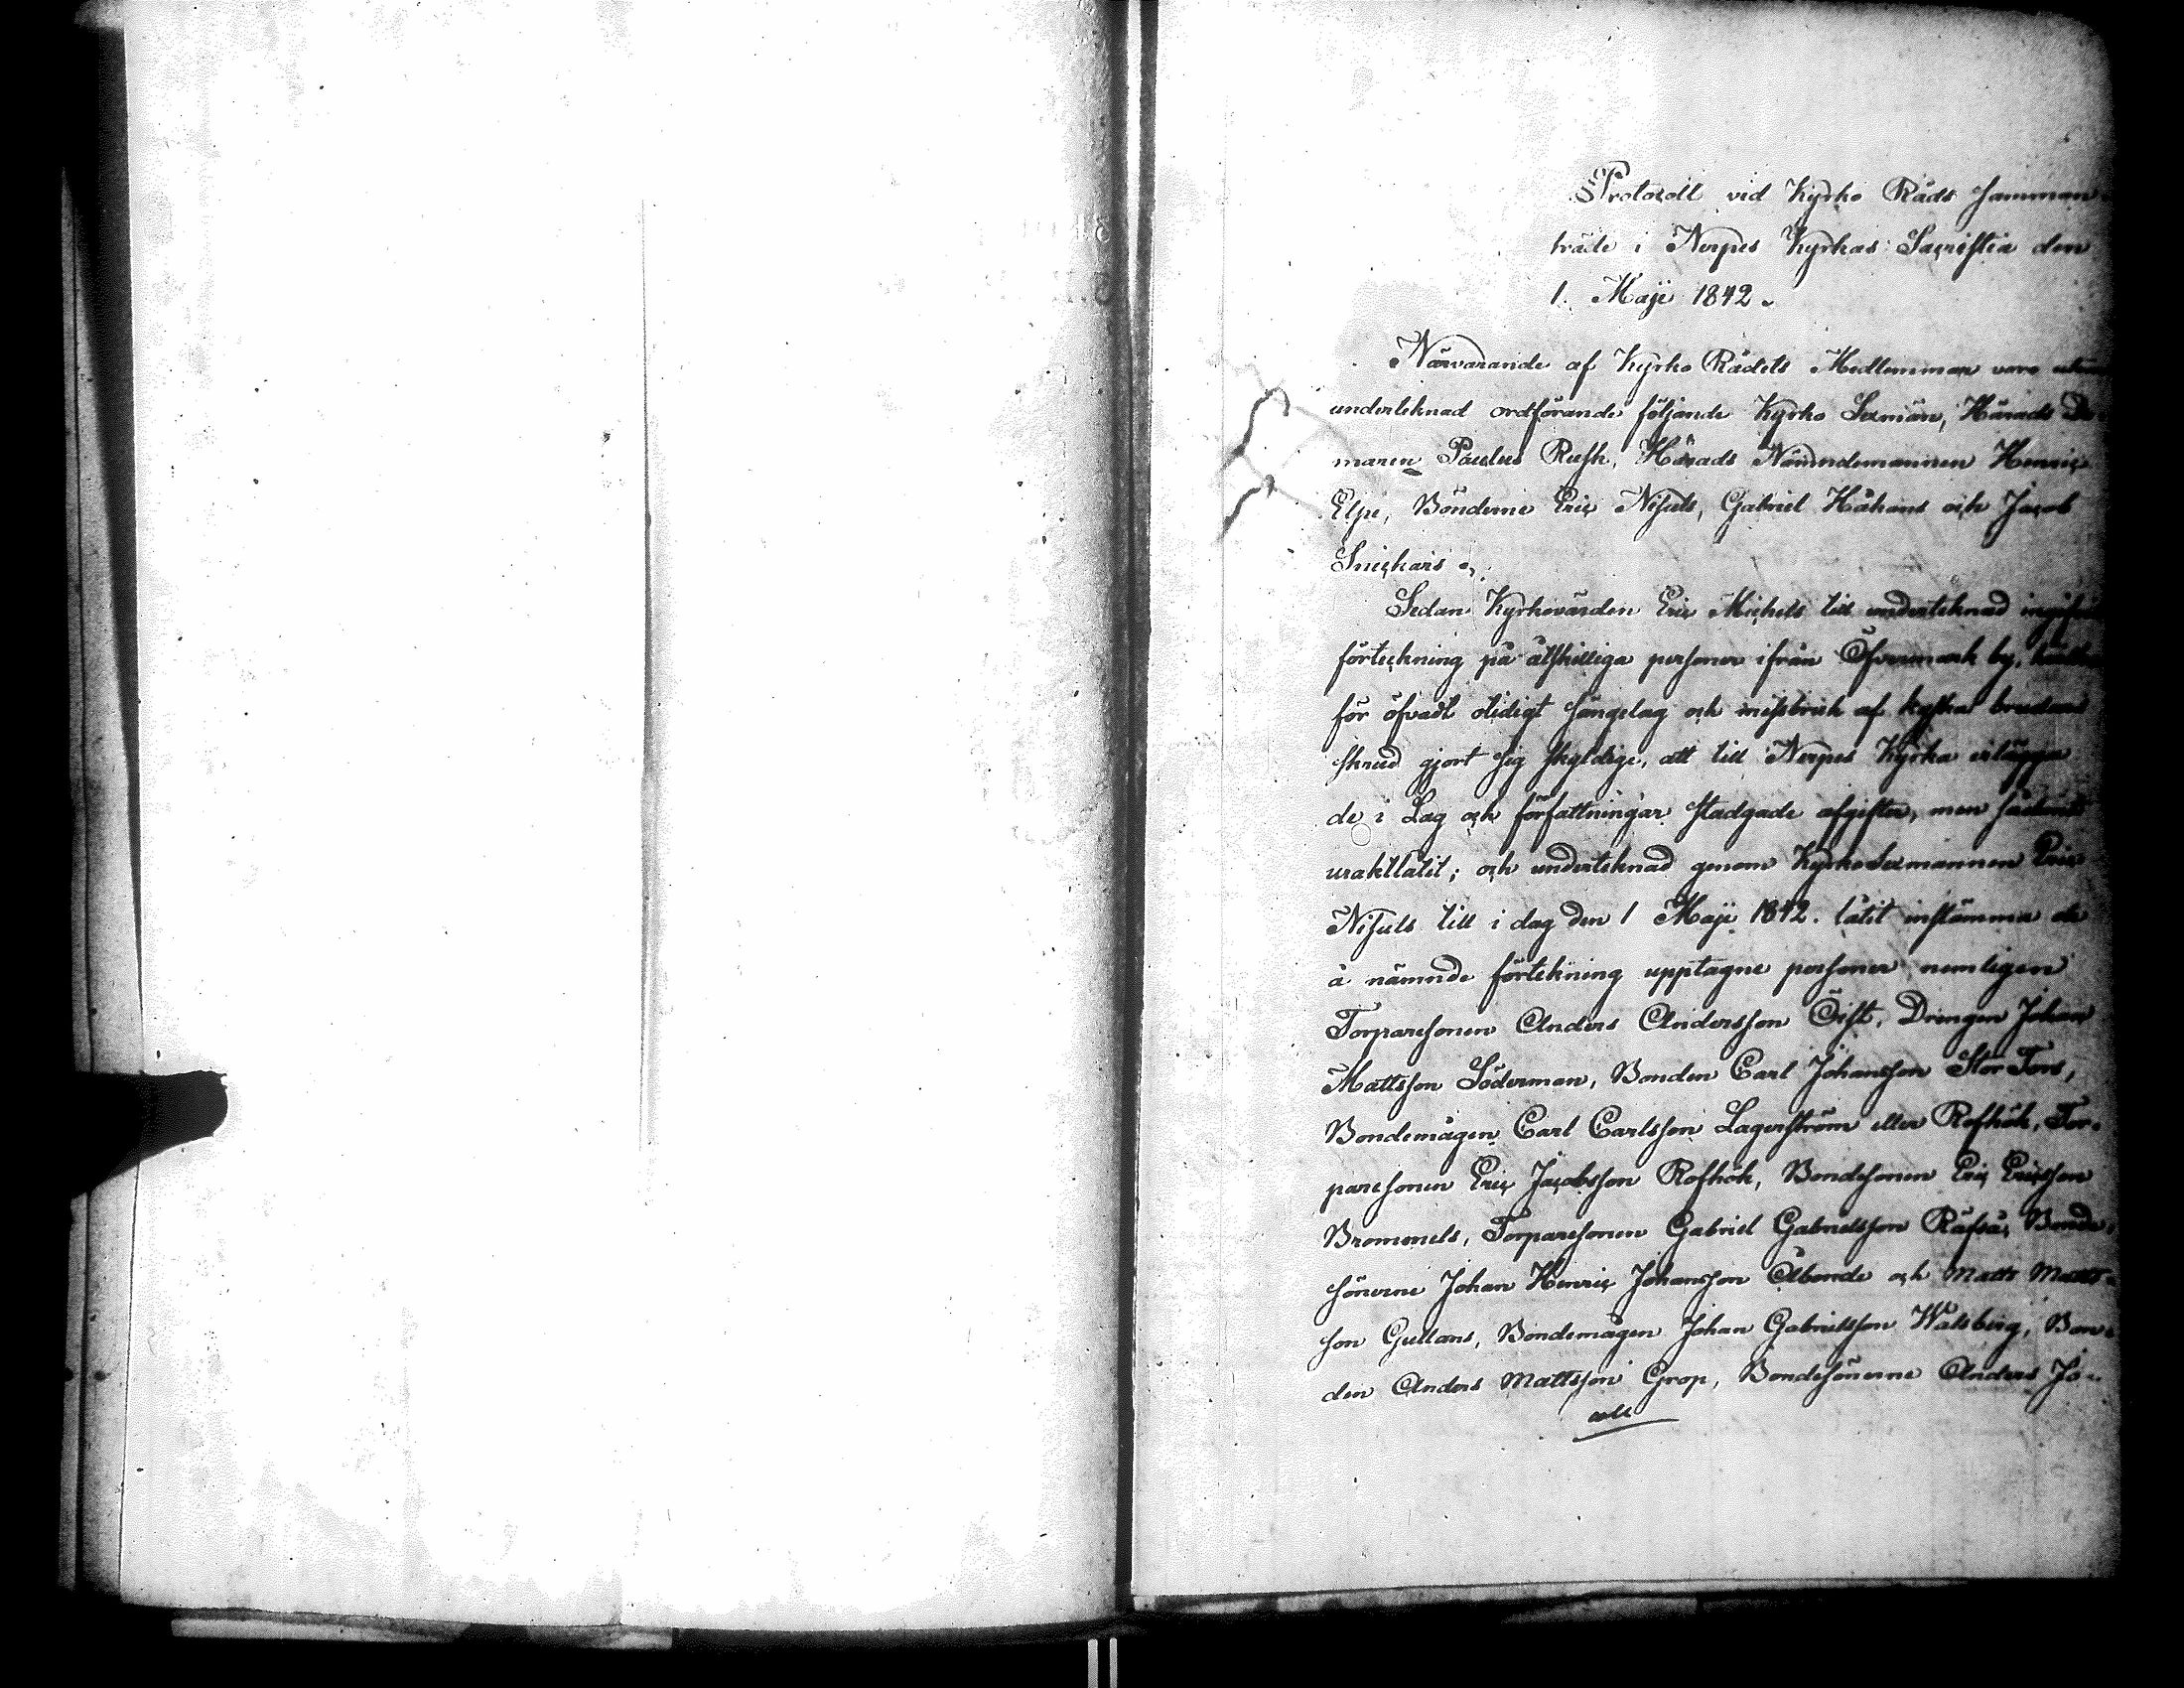 Protocoll vid Kyrko Råds samman-
träde i Nerpes Kyrkas Sacristia den
1. Maji 1842.
Närvarande af Kyrko Rådets Medlemmar voro utom
undertecknad ordförande följande Kyrko Sexmän, Härads Do
maren Paulus Rusk, Härads Nämndemannen Henric
Elpe, Bönderne Eric Nisuls, Gabriel Håkans och Jacob
Snickars.
Sedan Kyrkovärden Eric Michels till underteknad
förteckning på åtskilliga personer ifrån Öfvermark by,
för öfvadt otidigt sängelag och missbruk af kyska brudena
skrud gjort sig skyldige, att till Nerpes Kyrka erlägga
de i Lag och författningar stadgade afgifter, men sådant
uraktlåtit; och underteknad genom Kyrko Sexmannen Eric
Nisuls till i dag den 1 Maji 1842. låtit instämma de
å nämnde förtekning upptagne personer nemligen
Torparesonen Anders Andersson Öist, Drengen Johan
Mattsson Söderman, Bonden Carl Johansson Stor Tors,
Bondemågen Carl Carlsson Lagerström eller Rofhök, Tor-
paresonen Eric Jacobsson Rofhök, Bondesonen Eric Ericsson
Brommels, Torparesonen Gabriel Gabrielsson Räfsä, Bonde-
sönerne Johan Henric Johansson Åbonde och Matts Matts-
son Gullans, Bondemågen Johan Gabrielsson Walsberg, Bon-
den Anders Mattsson Grop, Bondesönerne Anders Ja-